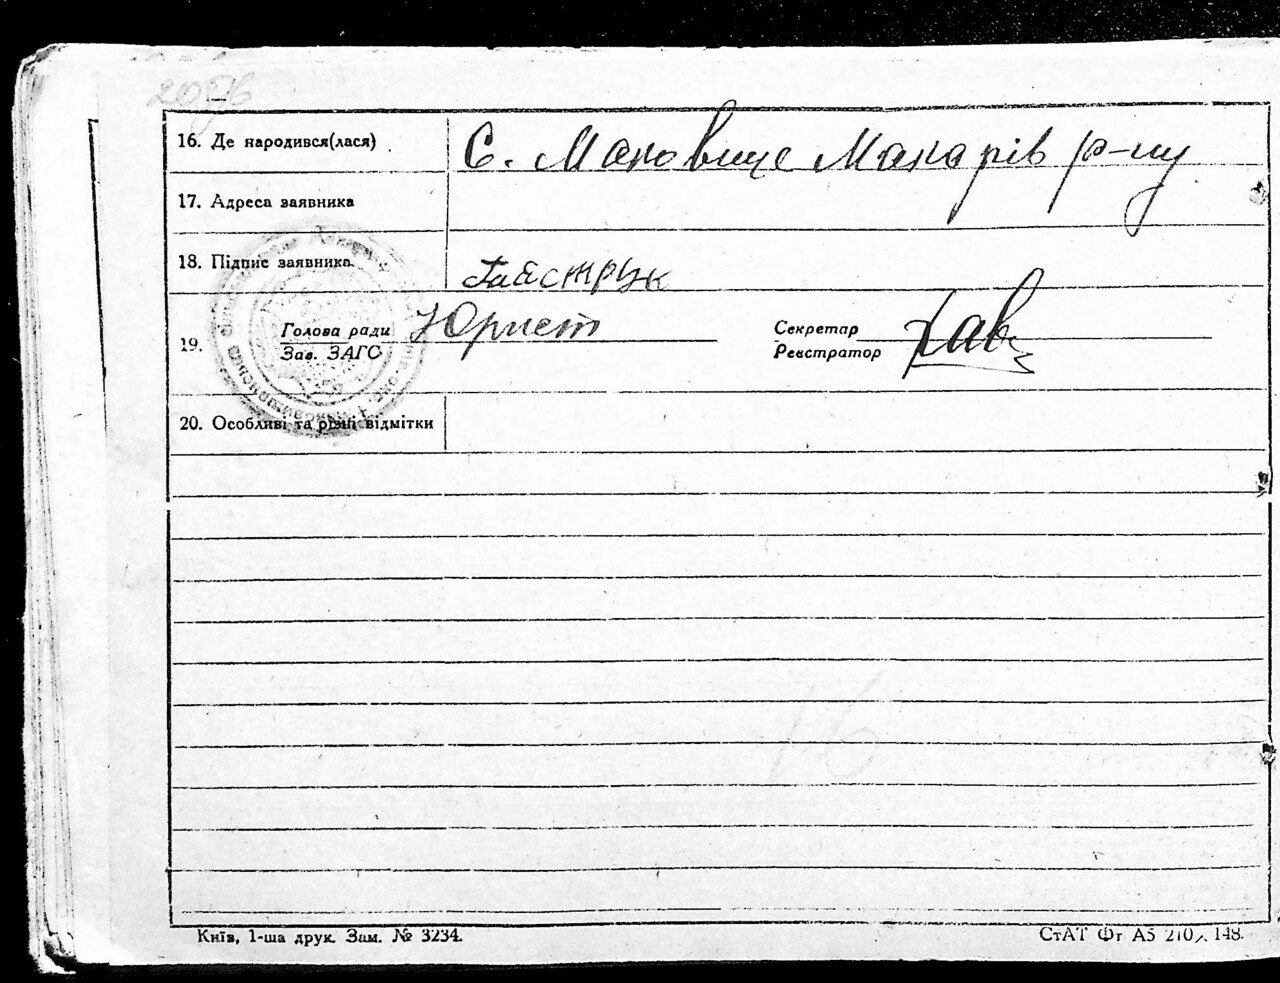 16. Де народився(лася)
С. Маковище Макарів р-ну
17. Адреса заявника
18. Підпис заявника
Гайструк
19. Голова ради Юрист Секретар
Зав. ЗАГС Реєстратор
20. Особливі та різні відмітки
Київ, 1-ша друк. Зам. № 3234.
СтАТ Фт А5 210 148.